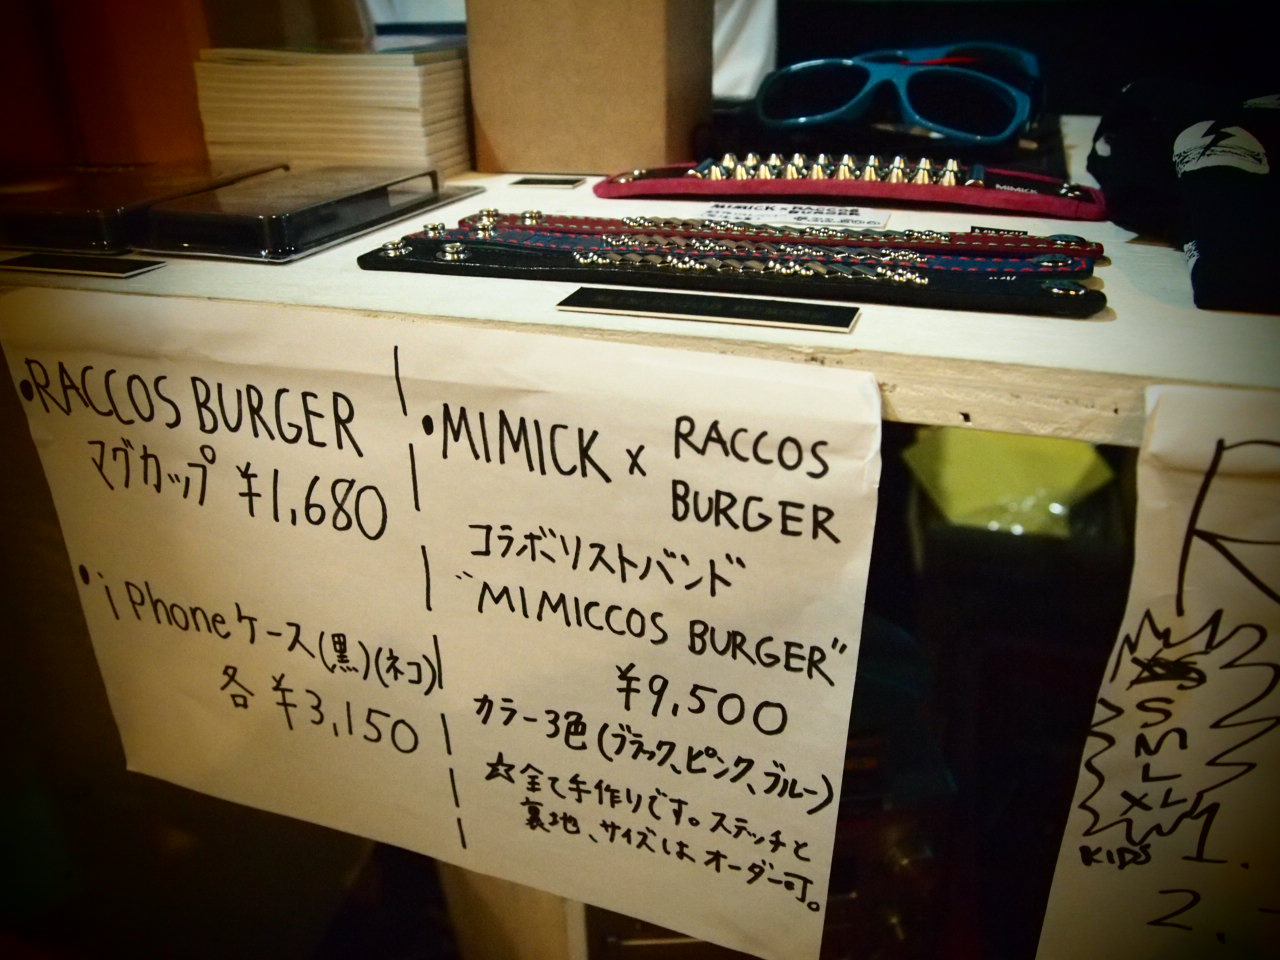 •RACCOS BURGER
マグカップ ¥1,680
•iPhoneケース(黒)(ネコ)
各 ¥3,150
•MIMICK x RACCOS
BURGER
コラボリストバンド
"MIMICCOS BURGER"
¥9,500
カラー3色(ブラック、ピンク、ブルー)
☆全て手作りです。ステッチと
裏地、サイズは オーダー可。
MIMICK
MIMICK x RACCOS
BURGER
R
S
M
L
XL
KIDS
1.
2.